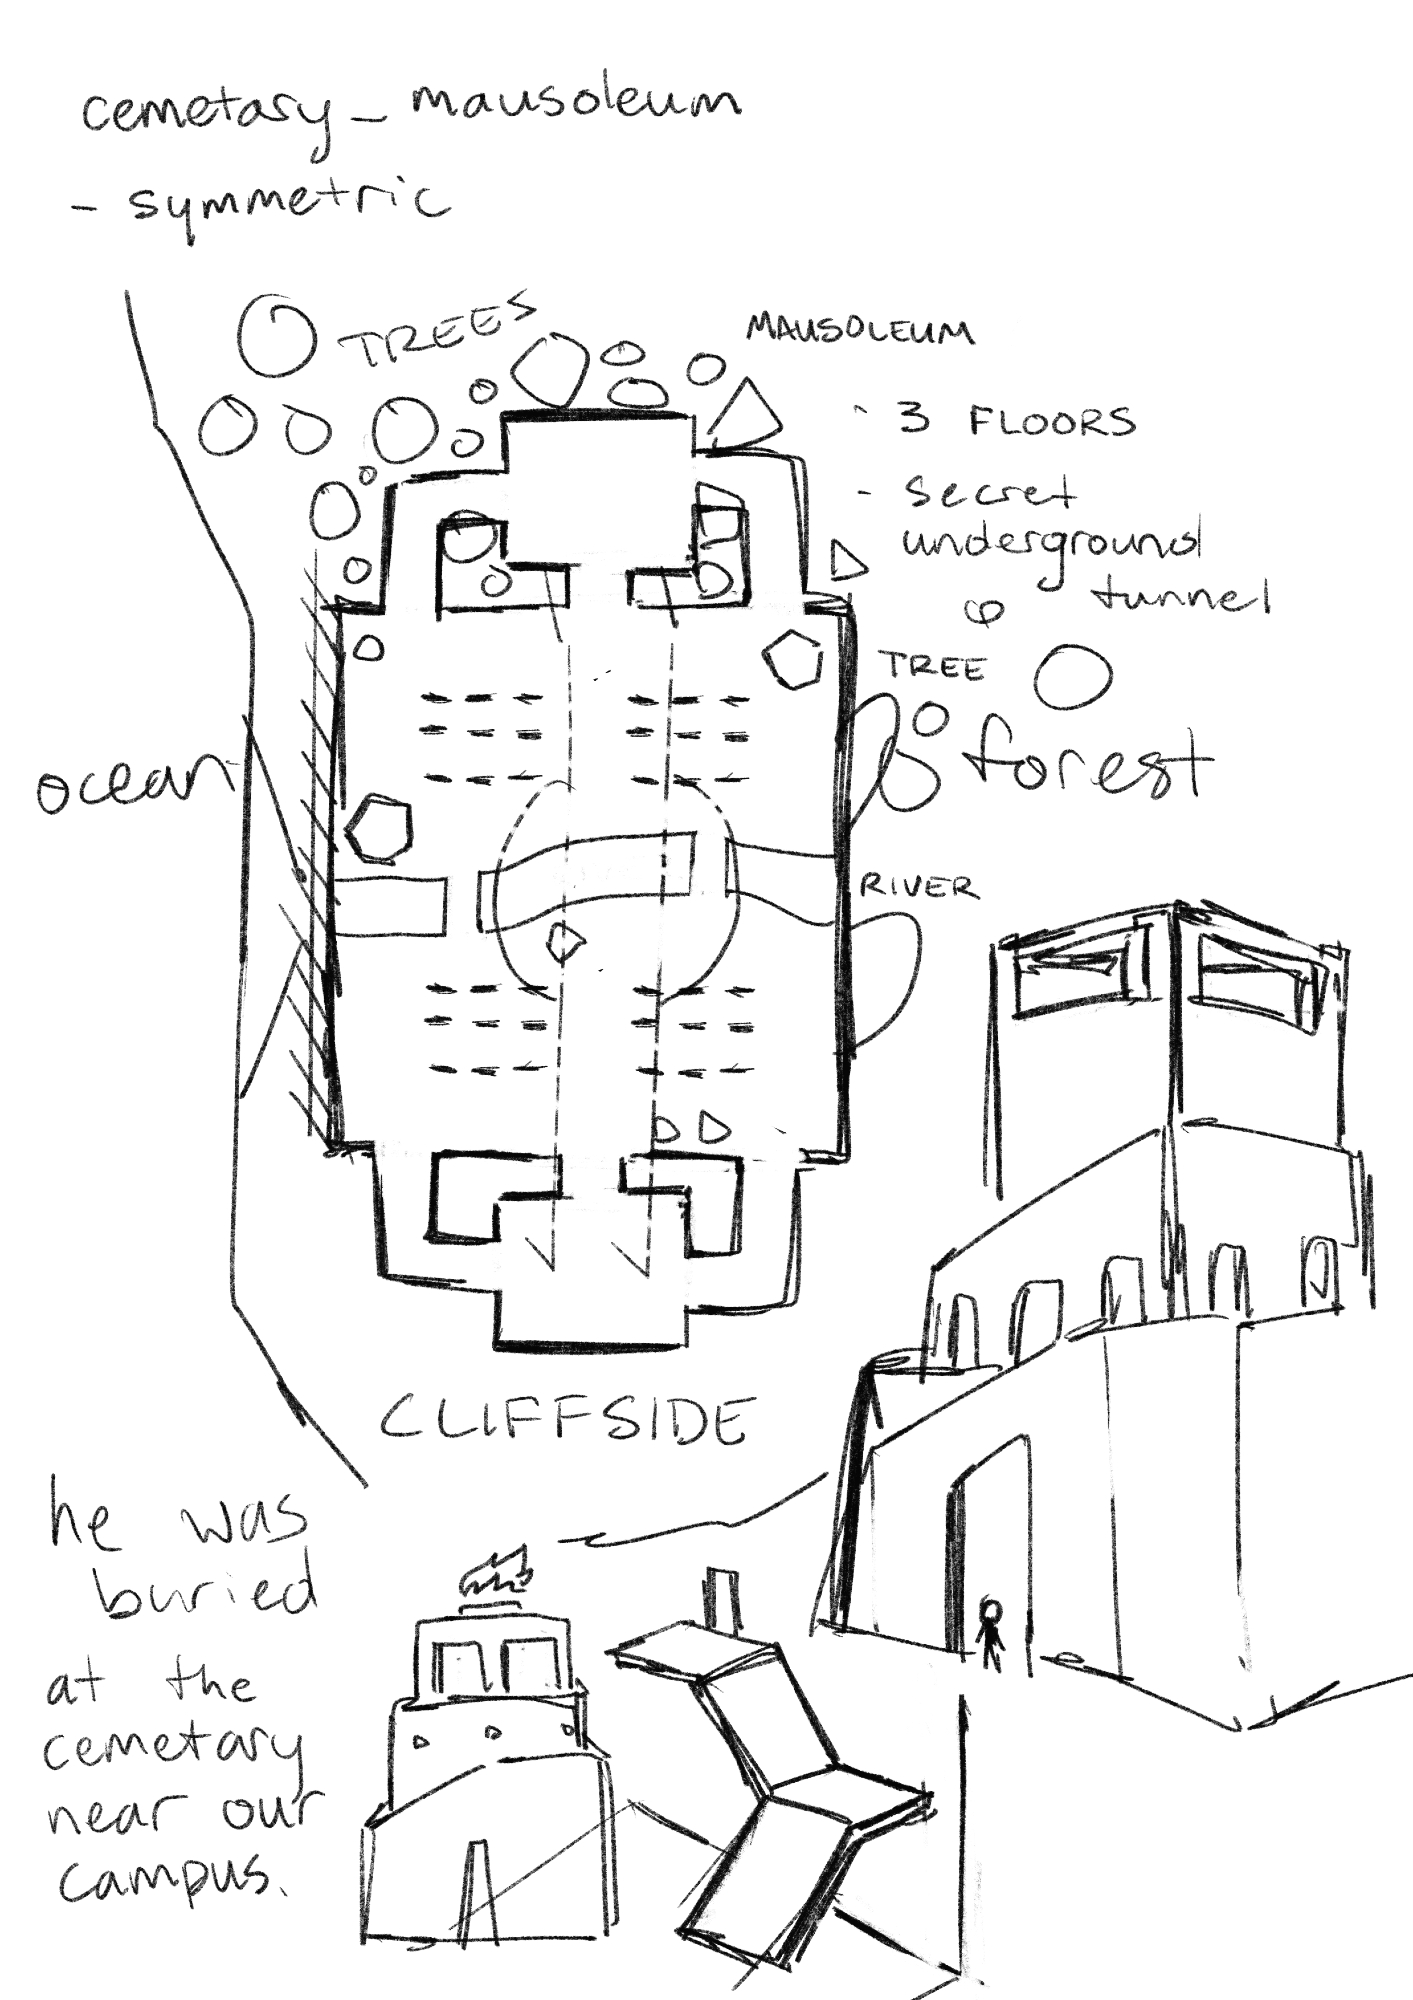 cemetary - mausoleum
- symmetric
TREES
MAUSOLEUM
- 3 FLOORS
- secret
underground
tunnel
TREE
forest
ocean
RIVER
CLIFFSIDE
he was
buried
at the
cemetary
near our
campus.